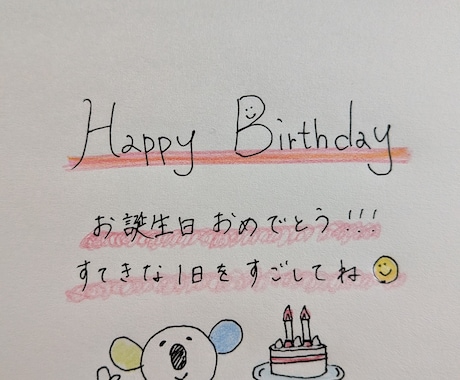 Happy Birthday
お誕生日おめでとう!!!
すてきな1日をすごしてね